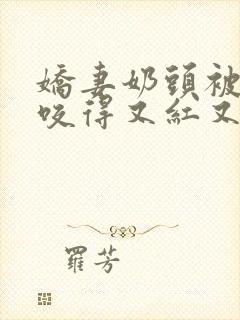 嬌妻奶頭被
咬得又紅又
羅芳